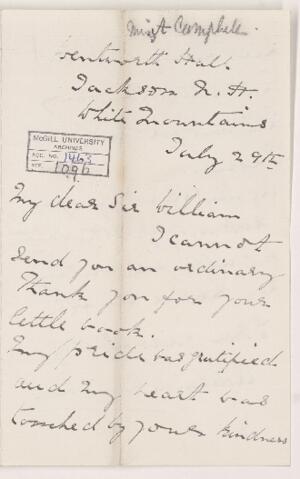 Campbell.
Wentworth Hall
Jackson N. H.
White Mountains
July 29th
McGILL UNIVERSITY
ARCHIVES
ACC. NO. 1463
REF.
My dear Sir William
I cannot
send you an ordinary
Thank you for your
little book.
My pride was gratified
and my heart was
touched by your kindness